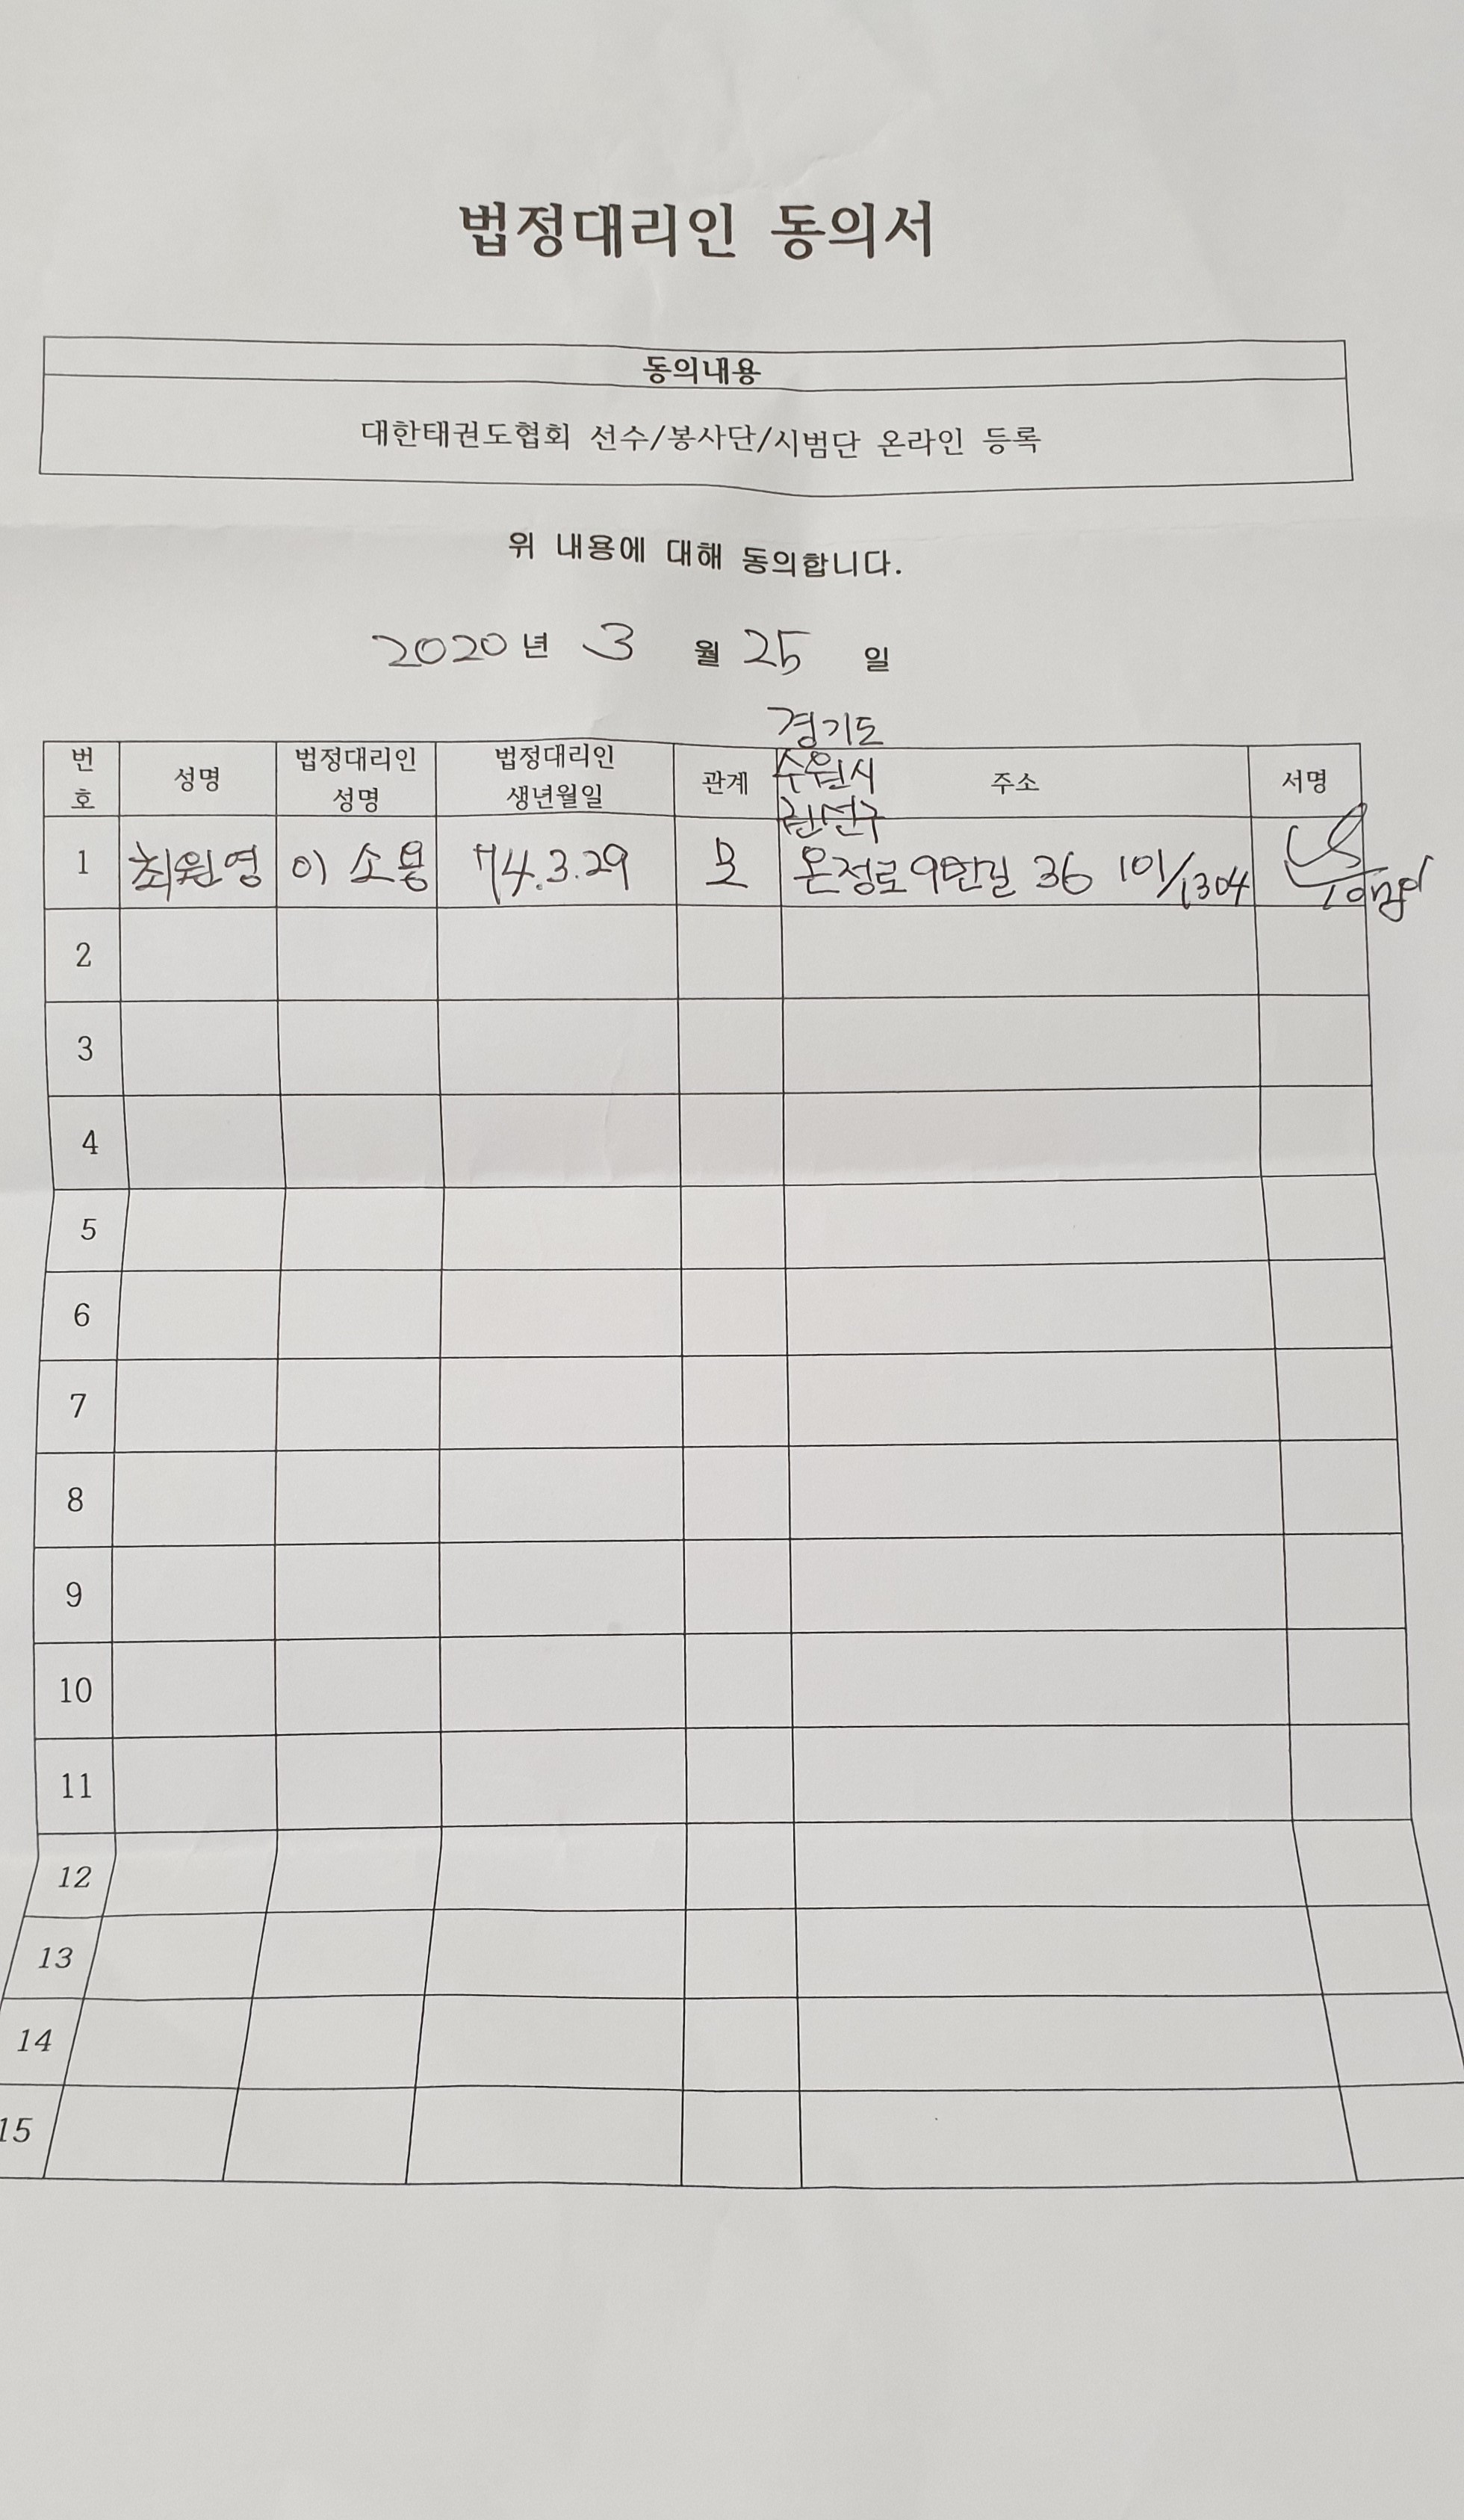 법정대리인 동의서
동의내용
대한태권도협회 선수/봉사단/시범단 온라인 등록
위 내용에 대해 동의합니다.
2020년 3 월 25 일
경기도
수원시
권선구
번호 성명 법정대리인 성명 법정대리인 생년월일 관계 주소 서명
1 최원영 이소용 74.3.29 모 온정로9번길 36 101/1304
2
3
4
5
6
7
8
9
10
11
12
13
14
15